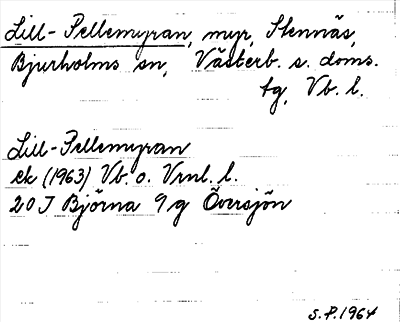 Lill-Pellemyran, myr, Stennäs,
Bjurholms sn, Västerb. s. doms.
tg, Vb. l.
Lill-Pellemyran
ek (1963) Vb. o. Vrnl. l.
20 J Björna 9 g Översjön
S.P. 1964